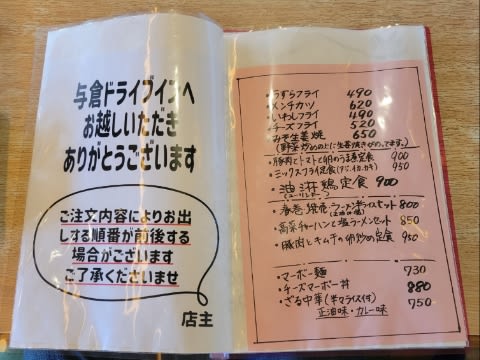 与倉ドライブインへ
お越しいただき
ありがとうございます
ご注文内容によりお出
しする順番が前後する
場合がございます
ご了承くださいませ
店主
うずらフライ 490
メンチカツ 620
いわしフライ 490
チーズフライ 520
みそ生姜焼 650
(野菜炒めの上に生姜焼きがのってます。)
・豚肉とトマトと卵のうま煮定食 900
・ミックスフライ定食 950
・油淋鶏定食 900
・ラーメン半ライスセット 800
・高菜チャーハンと塩ラーメンセット 850
・豚肉とキムチの卵炒め定食 950
・マーボー麺 730
・チーズマーボー丼 880
・ざる中華(半ライス付) 750
正油味・カレー味